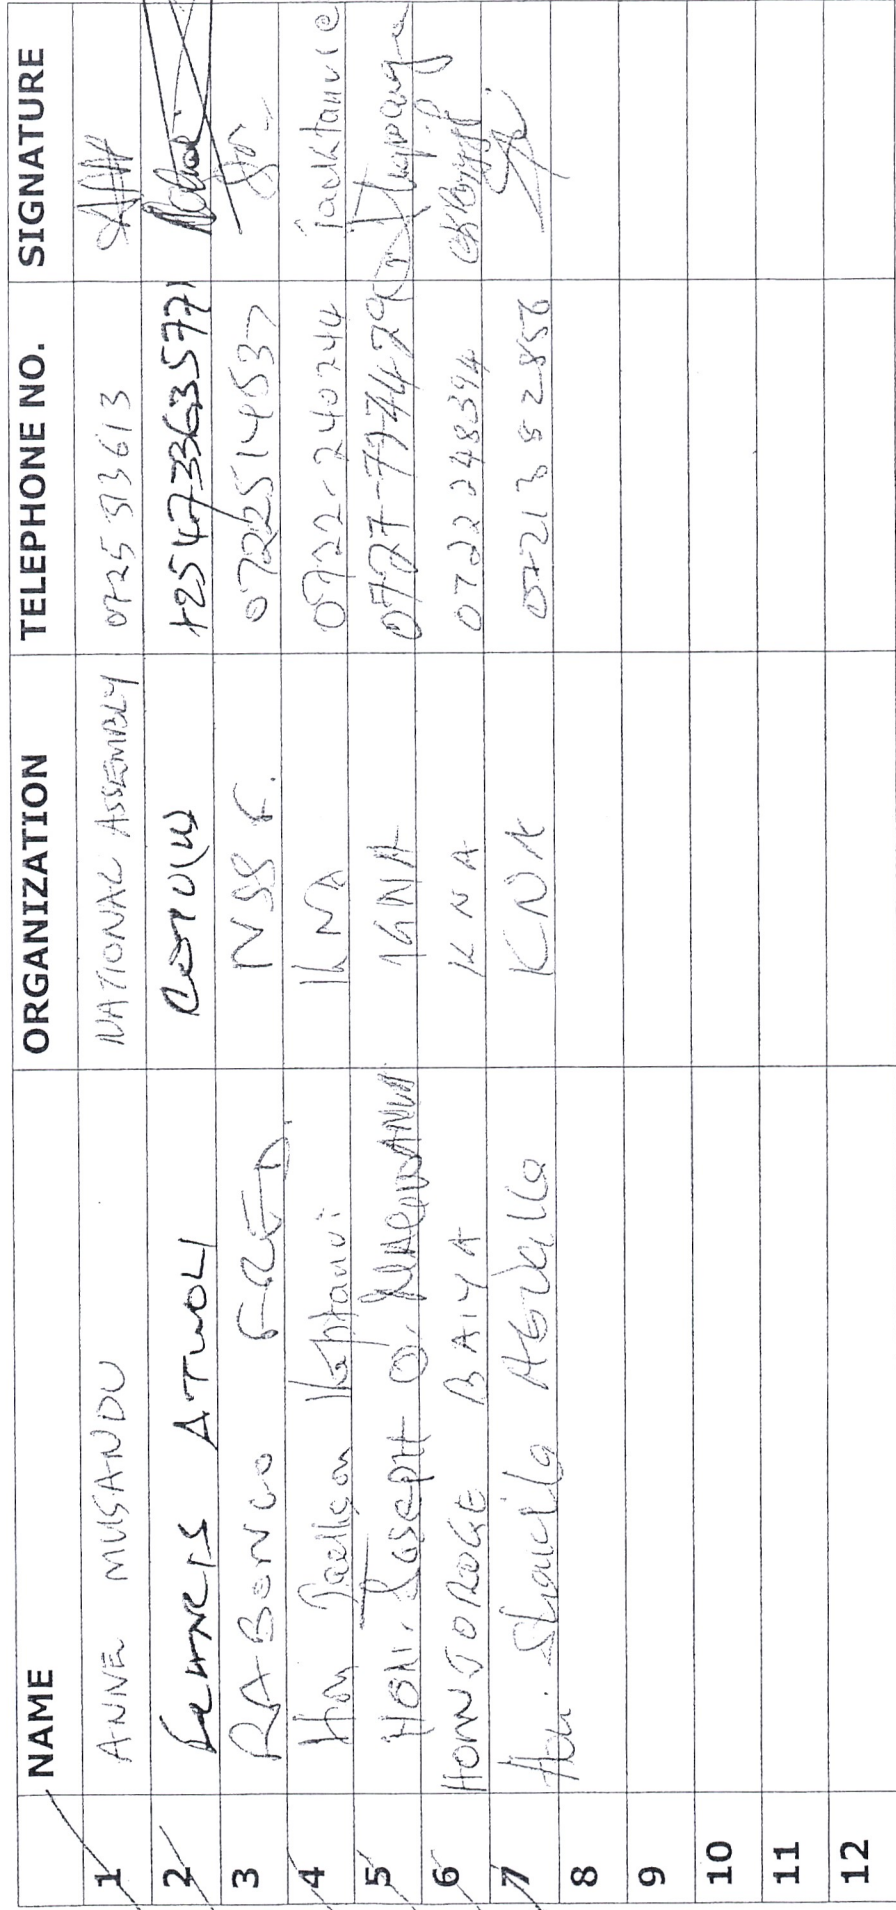 NAME ORGANIZATION TELEPHONE NO. SIGNATURE
1 ANNE MUSANDU NATIONAL ASSEMBLY 0725 513613
2 FRANCIS ATWOLI COTU(K) +254733635771
3 RABONGO FRED. NSSF. 0722514537
4 Hon Jackson Kiptanui KNA 0722-240244 jacktanui@
5 HON. JOSEPH O. KNA 0727-774429
6 HON NJOROGE BAIYA KNA 0722248394
7 Hon. Shakila Abdalla KNA 0721382856
8
9
10
11
12